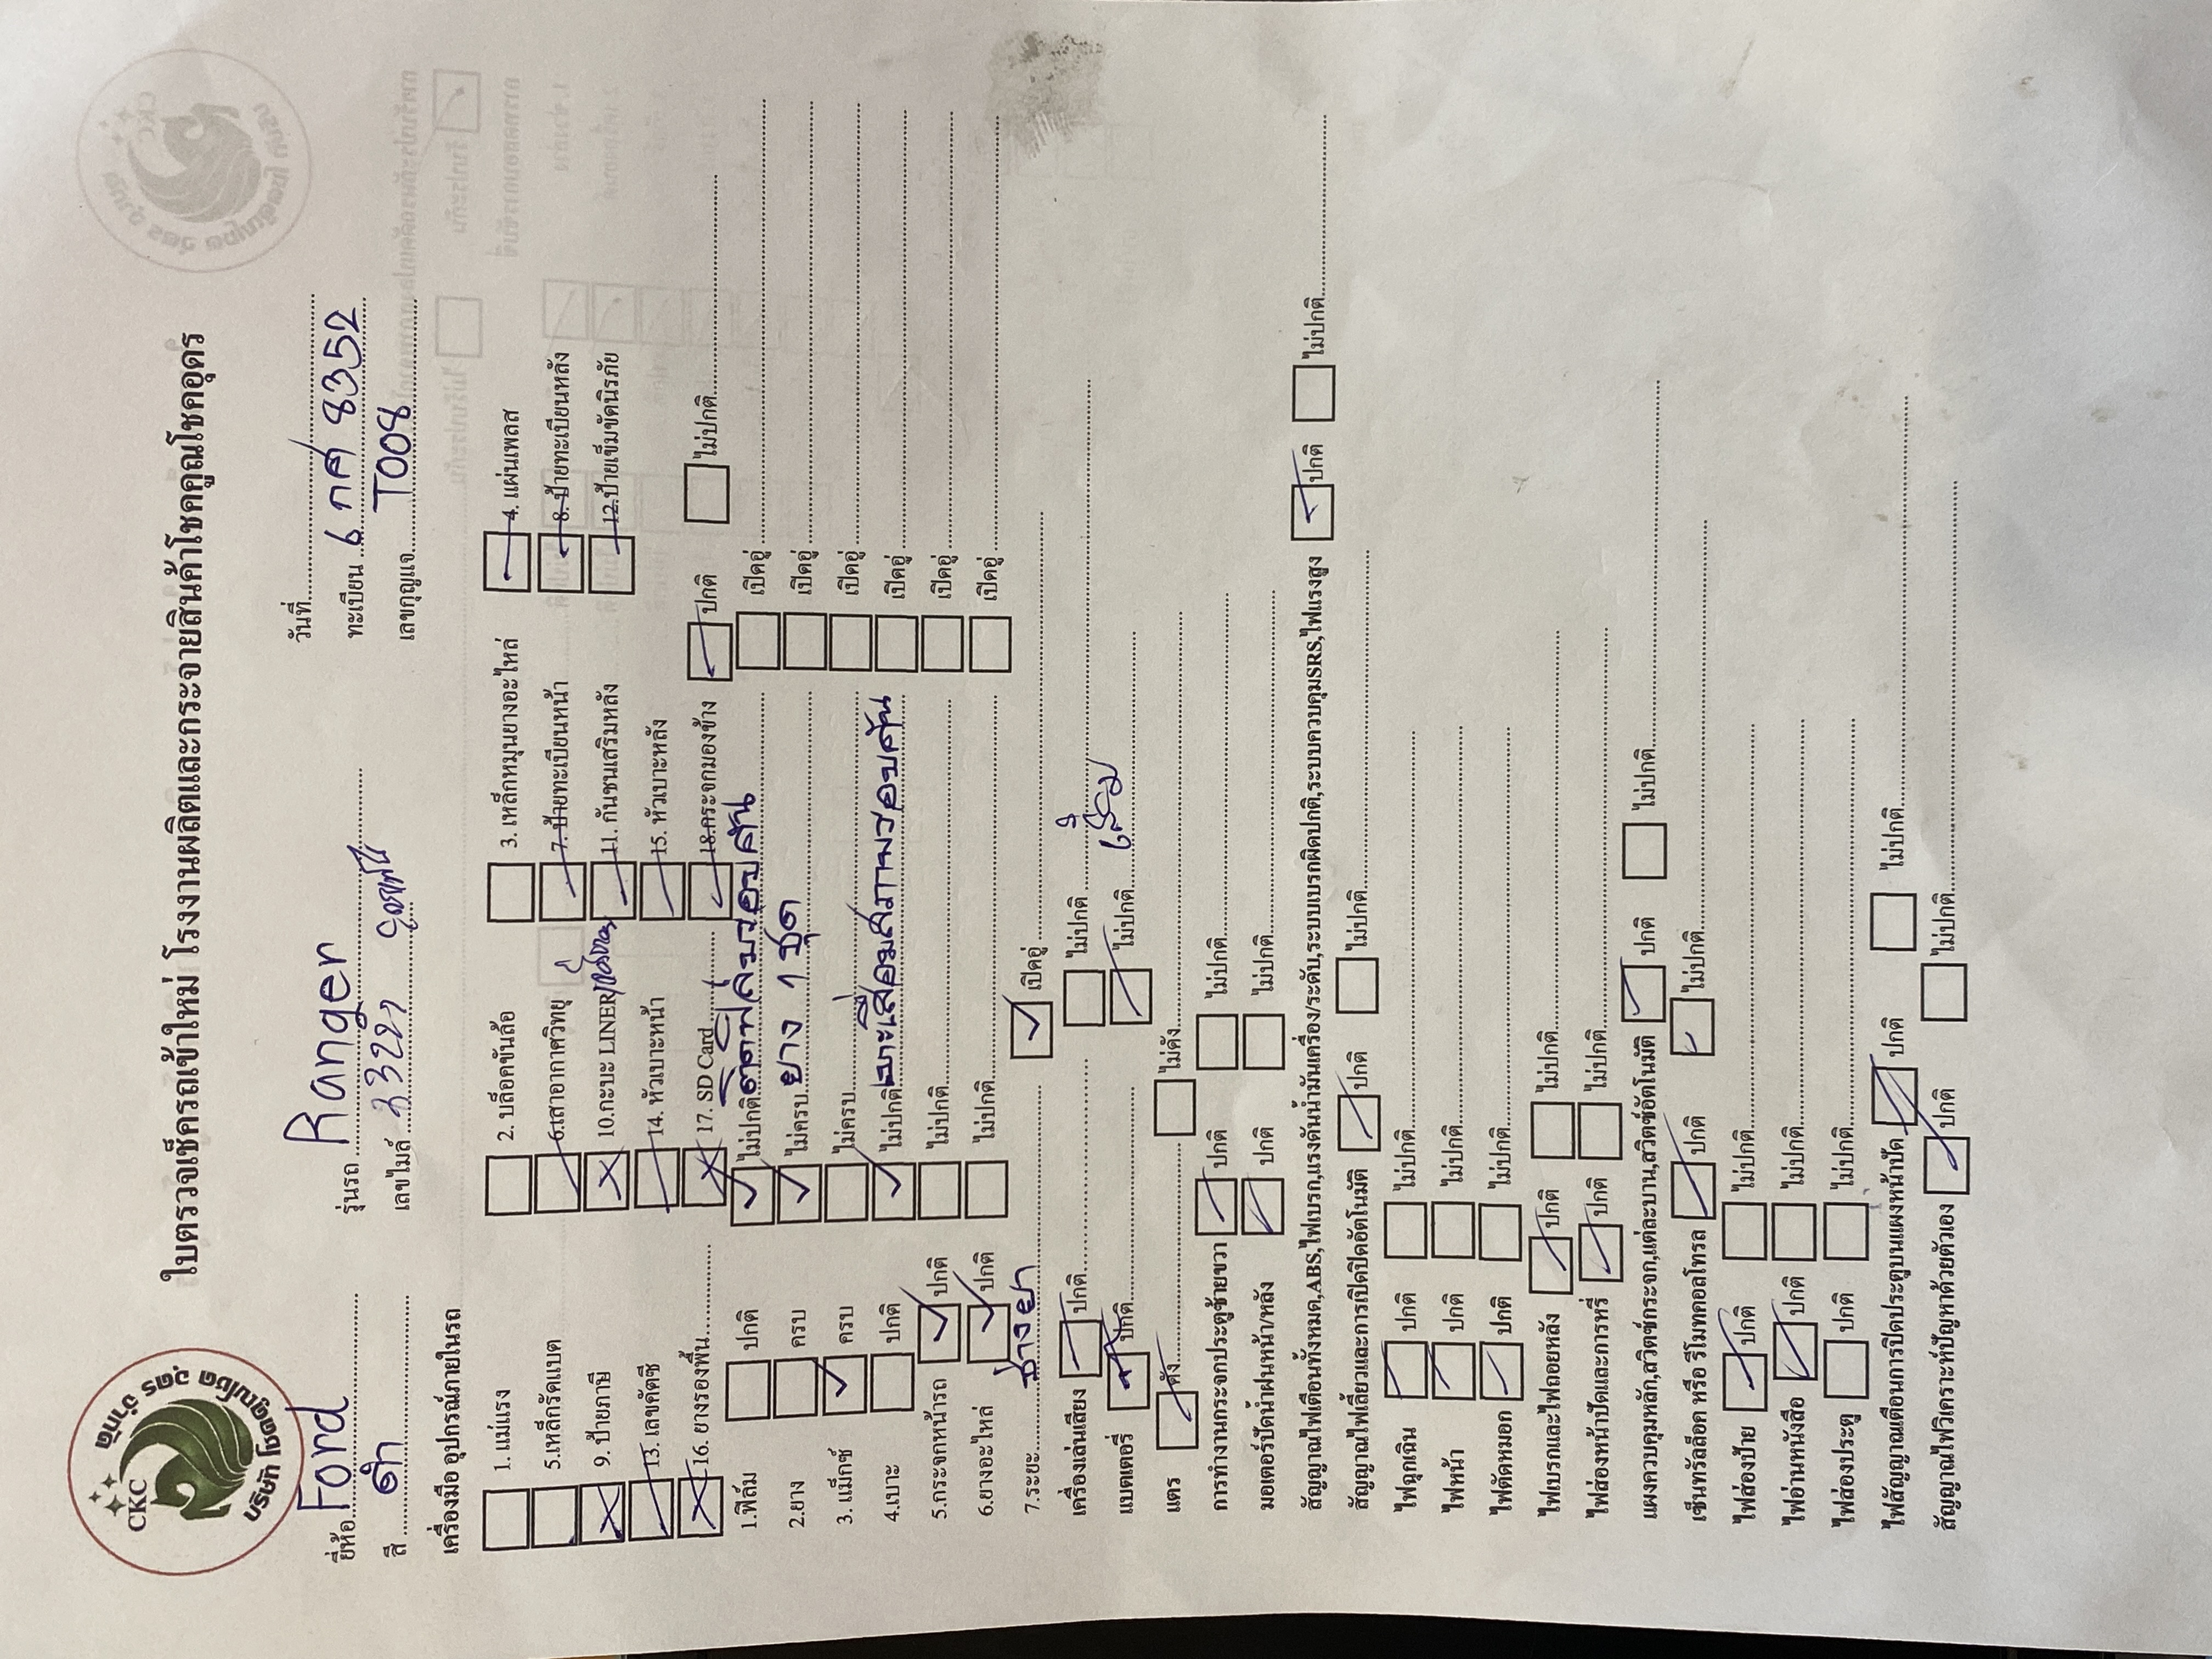 CKC
บริษัท โชคคูณโชค อุดร จำกัด
ใบตรวจเช็ครถเข้าใหม่ โรงงานผลิตและกระจายสินค้าโชคคูณโชคอุดร
วันที่
ยี่ห้อ Ford รุ่นรถ Ranger ทะเบียน 6 กศ 8352
สี ดำ เลขไมล์ เลขกุญแจ T008
เครื่องมือ อุปกรณ์ภายในรถ
1. แม่แรง 2. บล็อคขันล้อ 3. เหล็กหมุนยางอะไหล่ 4. แผ่นเพลส
5.เหล็กรัดแบต 6.เสาอากาศวิทยุ 7. ป้ายทะเบียนหน้า 8. ป้ายทะเบียนหลัง
9. ป้ายภาษี 10.กะบะ LINER 11. กันชนเสริมหลัง 12.ป้ายเข็มขัดนิรภัย
13. เลขคัตซี 14. หัวเบาะหน้า 15. หัวเบาะหลัง
16. ยางรองพื้น 17. SD Card 18.กระจกมองข้าง ปกติ ไม่ปกติ
1.ฟิล์ม ปกติ ไม่ปกติ ติดฟิล์มรอบคัน เปิดอู่
2.ยาง ครบ ไม่ครบ ยาง 1 ชุด เปิดอู่
3. แม็กซ์ ครบ ไม่ครบ เปิดอู่
4.เบาะ ปกติ ไม่ปกติ เบาะเสื่อมสภาพรอบคัน เปิดอู่
5.กระจกหน้ารถ ปกติ ไม่ปกติ เปิดอู่
6.ยางอะไหล่ ปกติ ไม่ปกติ เปิดอู่
7.ระยะ ช่างยา เปิดอู่
เครื่องเล่นเสียง ปกติ ไม่ปกติ
แบตเตอรี่ ปกติ ไม่ปกติ เสื่อม
แตร ดัง ไม่ดัง
การทำงานกระจกประตูซ้ายขวา ปกติ ไม่ปกติ
มอเตอร์ปัดน้ำฝนหน้า/หลัง ปกติ ไม่ปกติ
สัญญาณไฟเตือนทั้งหมด,ABS,ไฟเบรก,แรงดันน้ำมันเครื่อง/ระดับ,ระบบเบรกผิดปกติ,ระบบควบคุมSRS,ไฟแรงสูง ปกติ ไม่ปกติ
สัญญาณไฟเลี้ยวและการเปิดปิดอัตโนมัติ ปกติ ไม่ปกติ
ไฟฉุกเฉิน ปกติ ไม่ปกติ
ไฟหน้า ปกติ ไม่ปกติ
ไฟตัดหมอก ปกติ ไม่ปกติ
ไฟเบรกและไฟถอยหลัง ปกติ ไม่ปกติ
ไฟส่องหน้าปัดและการหรี่ ปกติ ไม่ปกติ
แผงควบคุมหลัก,สวิตซ์กระจก,แต่ละบาน,สวิตซ์อัตโนมัติ ปกติ ไม่ปกติ
เซ็นทรัลล็อค หรือ รีโมทคอลโทรล ปกติ ไม่ปกติ
ไฟส่องป้าย ปกติ ไม่ปกติ
ไฟอ่านหนังสือ ปกติ ไม่ปกติ
ไฟส่องประตู ปกติ ไม่ปกติ
ไฟสัญญาณเตือนการปิดประตูบนแผงหน้าปัด ปกติ ไม่ปกติ
สัญญาณไฟวิเคราะห์ปัญหาด้วยตัวเอง ปกติ ไม่ปกติ